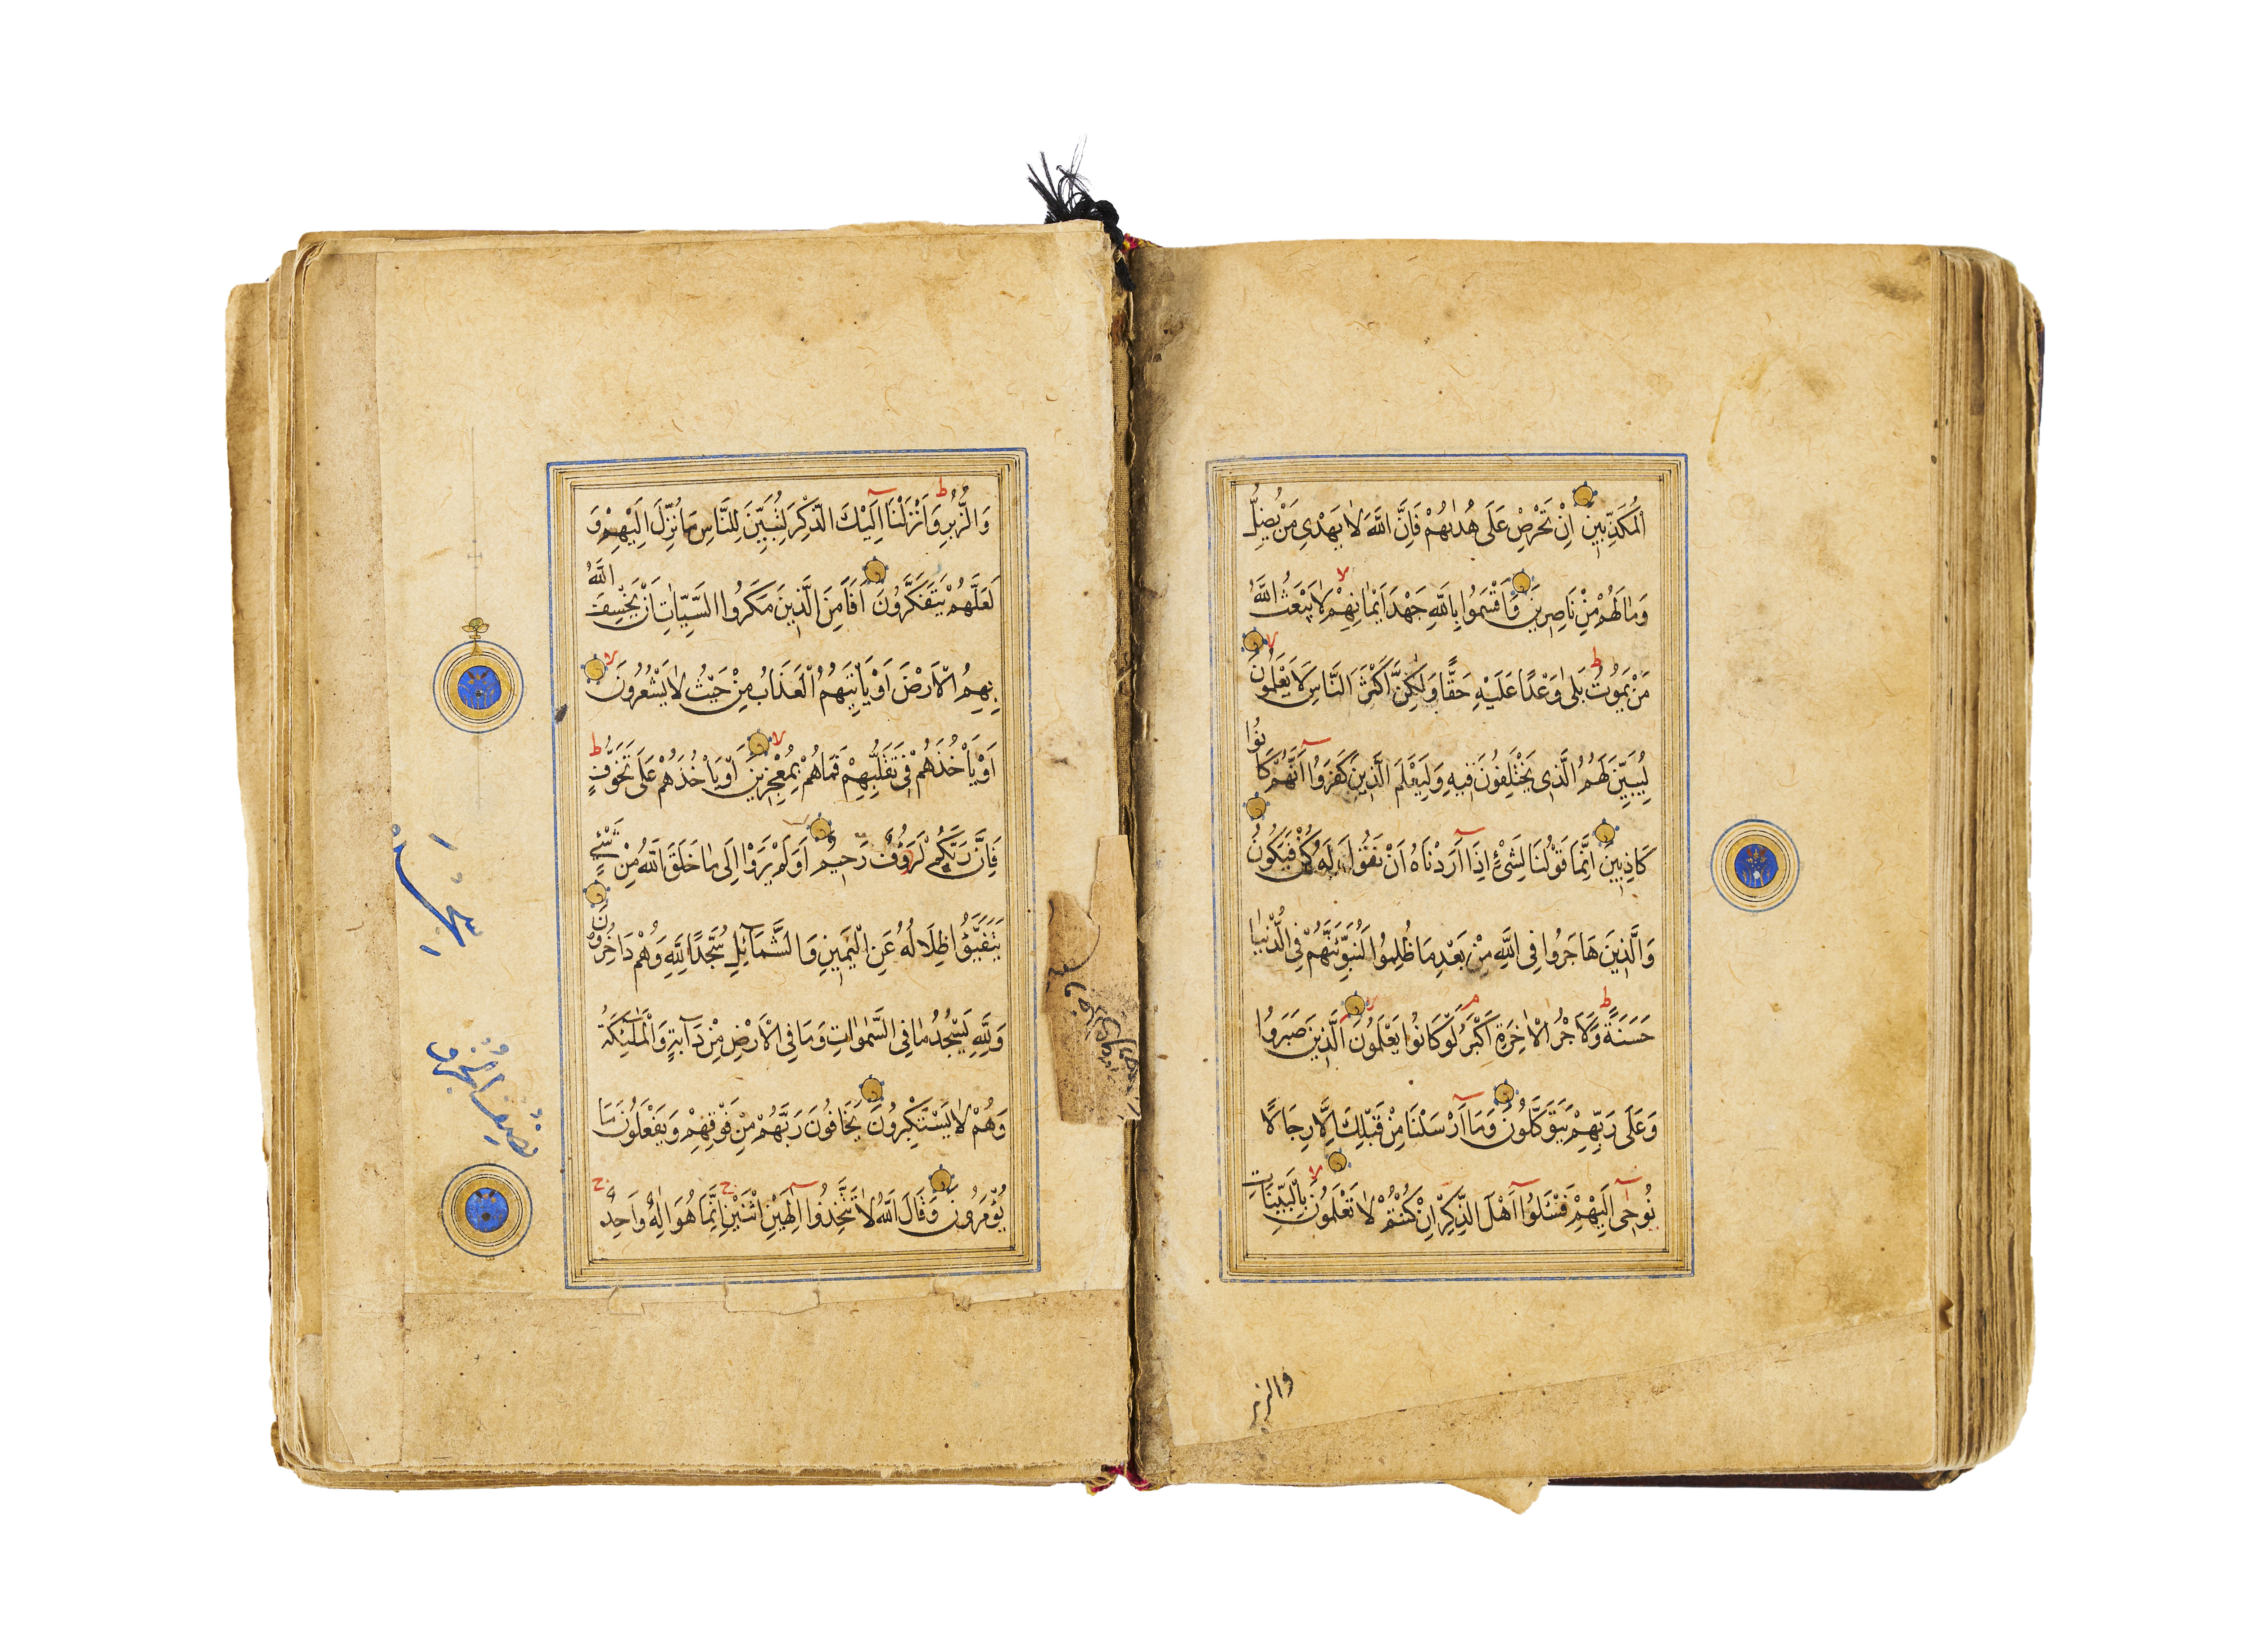 اَلْمُكَذِّبِينَ اِنْ تَحْرِصْ عَلَى هُدٰيهُمْ فَاِنَّ اللّٰهَ لَا يَهْدِى مَنْ يُضِلُّ
وَمَا لَهُمْ مِنْ نَاصِرِينَ وَاَقْسَمُوا بِاللّٰهِ جَهْدَ اَيْمَانِهِمْ لَا يَبْعَثُ اللّٰهُ
مَنْ يَمُوتُ بَلٰى وَعْدًا عَلَيْهِ حَقًّا وَلٰكِنَّ اَكْثَرَ النَّاسِ لَا يَعْلَمُونَ
لِيُبَيِّنَ لَهُمُ الَّذِى يَخْتَلِفُونَ فِيهِ وَلِيَعْلَمَ الَّذِينَ كَفَرُوا اَنَّهُمْ كَانُوا
كَاذِبِينَ اِنَّمَا قَوْلُنَا لِشَىْءٍ اِذَا اَرَدْنَاهُ اَنْ نَقُولَ لَهُ كُنْ فَيَكُونُ
وَالَّذِينَ هَاجَرُوا فِى اللّٰهِ مِنْ بَعْدِ مَا ظُلِمُوا لَنُبَوِّئَنَّهُمْ فِى الدُّنْيَا
حَسَنَةً وَلَاَجْرُ الْاٰخِرَةِ اَكْبَرُ لَوْ كَانُوا يَعْلَمُونَ اَلَّذِينَ صَبَرُوا
وَعَلَى رَبِّهِمْ يَتَوَكَّلُونَ وَمَا اَرْسَلْنَا مِنْ قَبْلِكَ اِلَّا رِجَالًا
نُوحِى اِلَيْهِمْ فَسْئَلُوا اَهْلَ الذِّكْرِ اِنْ كُنْتُمْ لَا تَعْلَمُونَ بِالْبَيِّنَاتِ
والزبر
وَالزُّبُرِ وَاَنْزَلْنَا اِلَيْكَ الذِّكْرَ لِتُبَيِّنَ لِلنَّاسِ مَا نُزِّلَ اِلَيْهِمْ وَ
لَعَلَّهُمْ يَتَفَكَّرُونَ اَفَاَمِنَ الَّذِينَ مَكَرُوا السَّيِّاٰتِ اَنْ يَخْسِفَ اللّٰهُ
بِهِمُ الْاَرْضَ اَوْ يَاْتِيَهُمُ الْعَذَابُ مِنْ حَيْثُ لَا يَشْعُرُونَ
اَوْ يَاْخُذَهُمْ فِى تَقَلُّبِهِمْ فَمَا هُمْ بِمُعْجِزِينَ اَوْ يَاْخُذَهُمْ عَلَى تَخَوُّفٍ
فَاِنَّ رَبَّكُمْ لَرَؤُفٌ رَحِيمٌ اَوَلَمْ يَرَوْا اِلَى مَا خَلَقَ اللّٰهُ مِنْ شَىْءٍ
يَتَفَيَّؤُا ظِلَالُهُ عَنِ الْيَمِينِ وَالشَّمَائِلِ سُجَّدًا لِلّٰهِ وَهُمْ دَاخِرُونَ
وَلِلّٰهِ يَسْجُدُ مَا فِى السَّمٰوَاتِ وَمَا فِى الْاَرْضِ مِنْ دَابَّةٍ وَالْمَلٰئِكَةُ
وَهُمْ لَا يَسْتَكْبِرُونَ يَخَافُونَ رَبَّهُمْ مِنْ فَوْقِهِمْ وَيَفْعَلُونَ مَا
يُؤْمَرُونَ وَقَالَ اللّٰهُ لَا تَتَّخِذُوا اِلٰهَيْنِ اثْنَيْنِ اِنَّمَا هُوَ اِلٰهٌ وَاحِدٌ